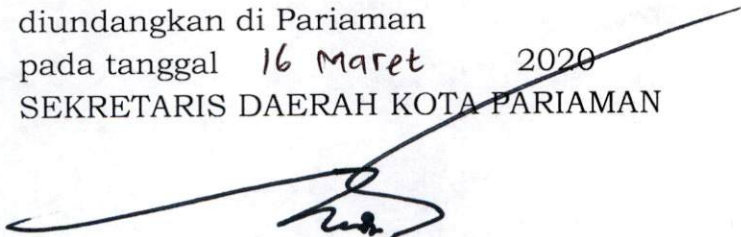 diundangkan di Pariaman
pada tanggal 16 Maret 2020
SEKRETARIS DAERAH KOTA PARIAMAN